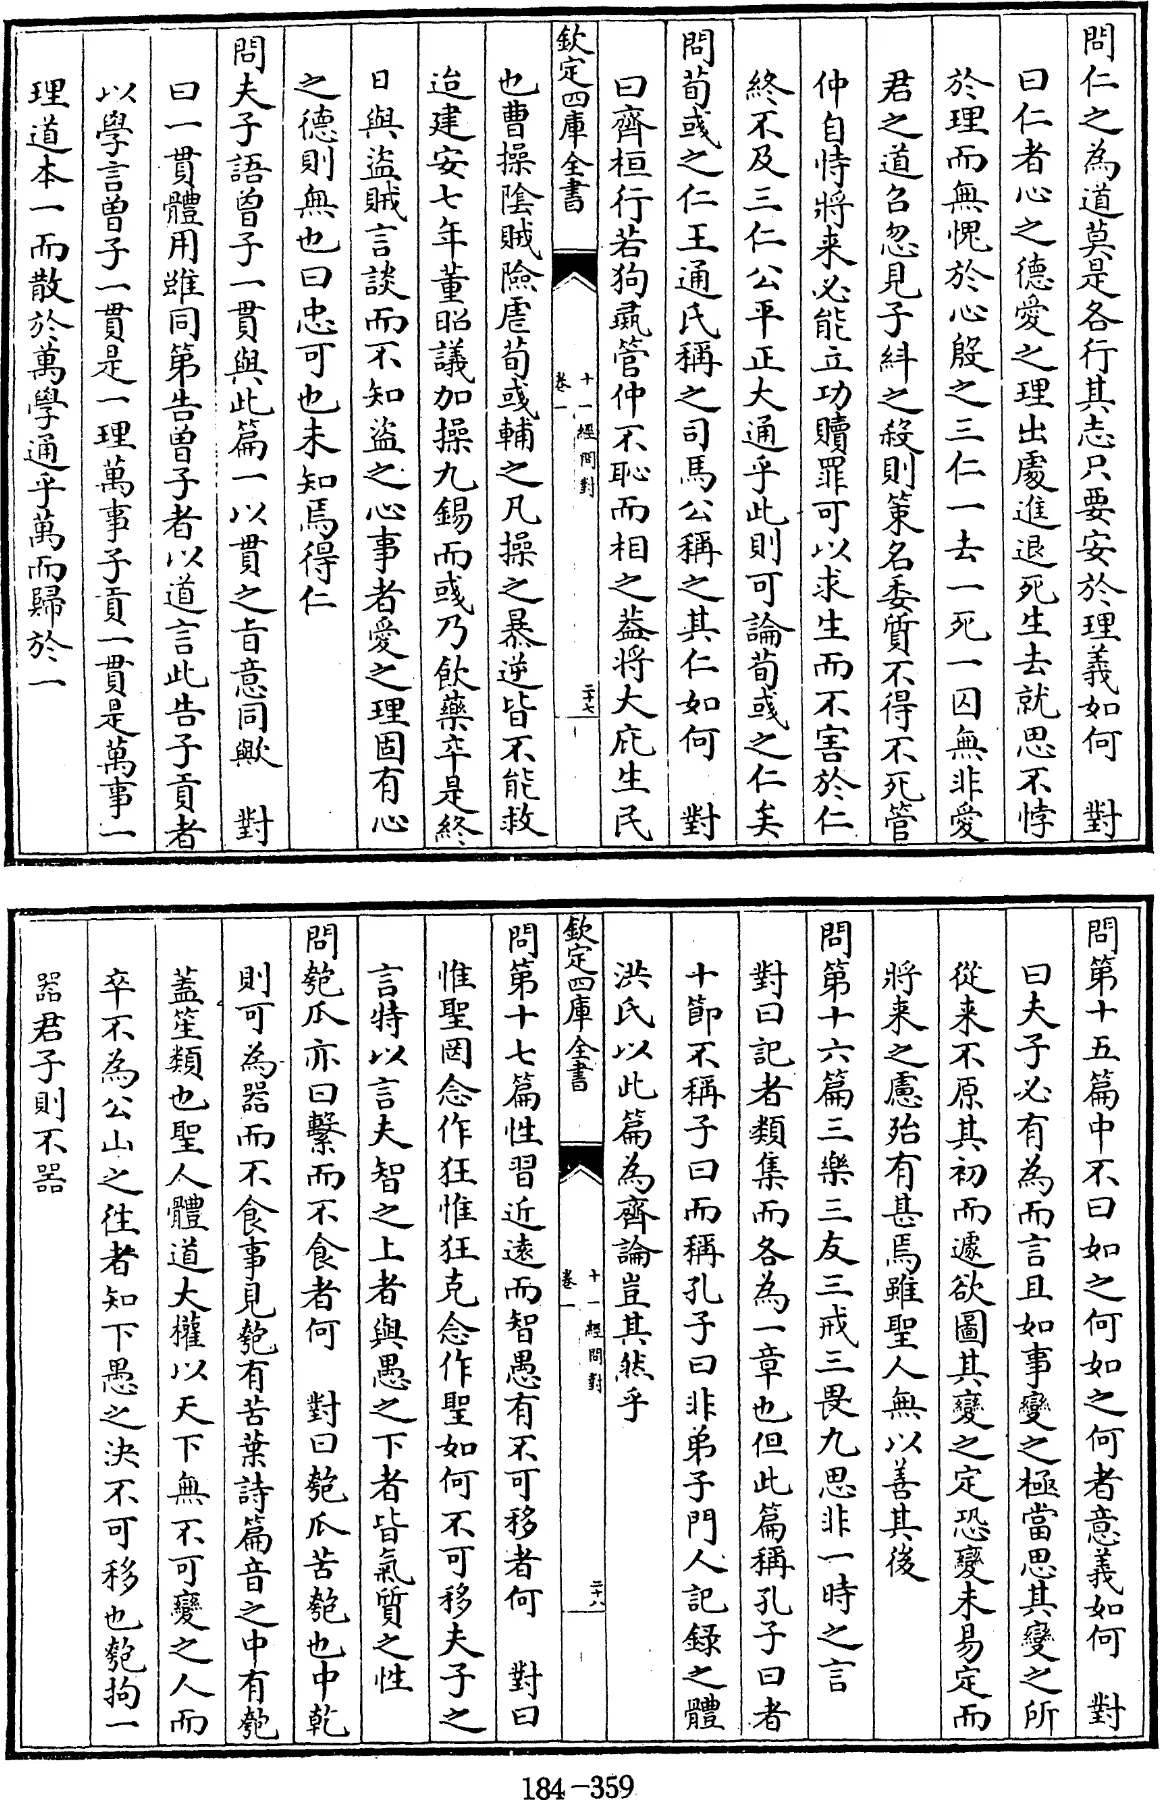 問仁之為道莫是各行其志只要安於理義如何　對
曰仁者心之德愛之理出處進退死生去就思不悖
於理而無愧於心殷之三仁一去一死一囚無非愛
君之道召忽見子糾之殺則策名委質不得不死管
仲自恃將来必能立功贖罪可以求生而不害於仁
終不及三仁公平正大通乎此則可論荀彧之仁矣
問荀彧之仁王通氏稱之司馬公稱之其仁如何　對
曰齊桓行若狗彘管仲不恥而相之葢將大庇生民
欽定四庫全書
十一經問對
卷一
二十七
也曹操陰賊險虐荀彧輔之凡操之暴逆皆不能救
迨建安七年董昭議加操九錫而彧乃飲藥卒是終
日與盜賊言談而不知盜之心事者愛之理固有心
之德則無也曰忠可也未知焉得仁
問夫子語曾子一貫與此篇一以貫之㫖意同歟　對
曰一貫體用雖同第告曾子者以道言此告子貢者
以學言曾子一貫是一理萬事子貢一貫是萬事一
理道本一而散於萬學通乎萬而歸於一
問第十五篇中不曰如之何如之何者意義如何　對
曰夫子必有為而言且如事變之極當思其變之所
從来不原其初而遽欲圖其變之定恐變未易定而
將来之慮殆有甚焉雖聖人無以善其後
問第十六篇三樂三友三戒三畏九思非一時之言
對曰記者類集而各為一章也但此篇稱孔子曰者
十節不稱子曰而稱孔子曰非弟子門人記録之體
洪氏以此篇為齊論豈其然乎
欽定四庫全書
十一經問對
卷一
二十八
問第十七篇性習近遠而智愚有不可移者何　對曰
惟聖罔念作狂惟狂克念作聖如何不可移夫子之
言特以言夫智之上者與愚之下者皆氣質之性
問匏瓜亦曰繫而不食者何　對曰匏瓜苦匏也中乾
則可為器而不食事見匏有苦葉詩篇音之中有匏
蓋笙類也聖人體道大權以天下無不可變之人而
卒不為公山之徃者知下愚之決不可移也匏拘一
器君子則不器
184-359